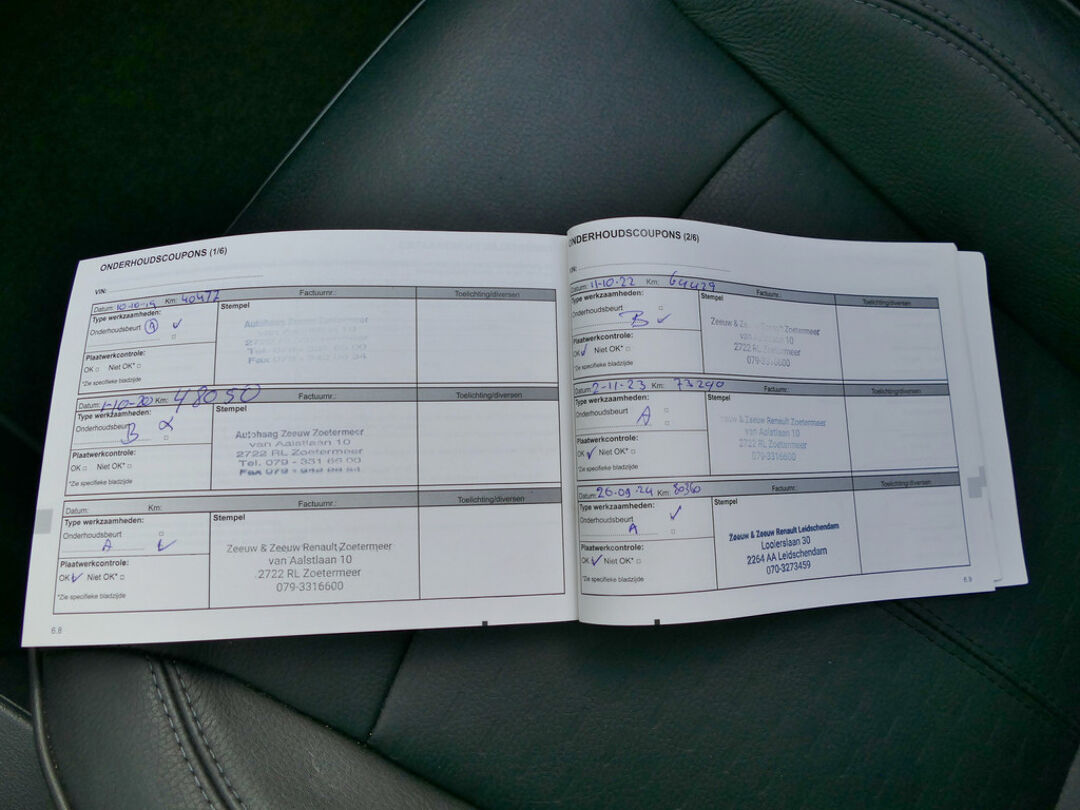 ONDERHOUDSCOUPONS (1/6)
VIN:
Datum: 10-10-19 Km: 40477 Factuurnr.: Toelichting/diversen
Type werkzaamheden: Stempel
Onderhoudsbeurt A ✓
Autohaag Zeeuw Zoetermeer
van Aalstlaan 10
2722 RL Zoetermeer
Plaatwerkcontrole:
OK □ Niet OK* □
*Zie specifieke bladzijde
Datum: 1-10-20 Km: 48050 Factuurnr.: Toelichting/diversen
Type werkzaamheden: Stempel
Onderhoudsbeurt B
Autohaag Zeeuw Zoetermeer
van Aalstlaan 10
2722 RL Zoetermeer
Tel. 079 - 331 66 00
Plaatwerkcontrole:
OK □ Niet OK* □
*Zie specifieke bladzijde
Datum: Km: Factuurnr.: Toelichting/diversen
Type werkzaamheden: Stempel
Onderhoudsbeurt □
A ✓
Zeeuw & Zeeuw Renault Zoetermeer
van Aalstlaan 10
2722 RL Zoetermeer
079-3316600
Plaatwerkcontrole:
OK ✓ Niet OK* □
*Zie specifieke bladzijde
6.8
ONDERHOUDSCOUPONS (2/6)
VIN:
Datum: 11-10-22 Km: 64429 Factuurnr.: Toelichting/diversen
Type werkzaamheden: Stempel
Onderhoudsbeurt □
B ✓
Zeeuw & Zeeuw Renault Zoetermeer
van Aalstlaan 10
2722 RL Zoetermeer
079-3316600
Plaatwerkcontrole:
OK ✓ Niet OK* □
*Zie specifieke bladzijde
Datum: 2-11-23 Km: 73290 Factuurnr.: Toelichting/diversen
Type werkzaamheden: Stempel
Onderhoudsbeurt □
A
Zeeuw & Zeeuw Renault Zoetermeer
van Aalstlaan 10
2722 RL Zoetermeer
079-3316600
Plaatwerkcontrole:
OK ✓ Niet OK* □
*Zie specifieke bladzijde
Datum: 26-09-24 Km: 80360 Factuurnr.: Toelichting/diversen
Type werkzaamheden: Stempel
Onderhoudsbeurt ✓
A
Zeeuw & Zeeuw Renault Leidschendam
Looierslaan 30
2264 AA Leidschendam
070-3273459
Plaatwerkcontrole:
OK ✓ Niet OK* □
*Zie specifieke bladzijde
6.9